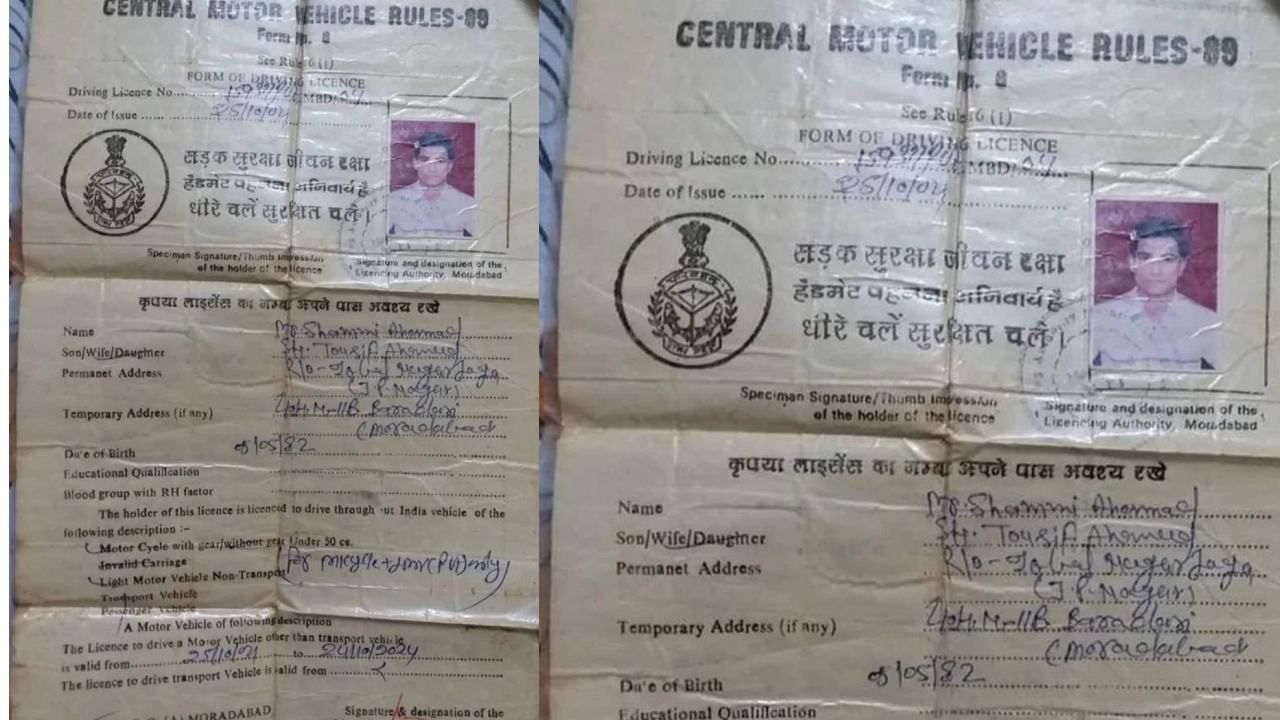 CENTRAL MOTOR VEHICLE RULES-89
Form 8
See Rule 16 (1)
FORM OF DRIVING LICENCE
Driving Licence No. MBD/
Date of Issue 25/10/04
सड़क सुरक्षा जीवन रक्षा
हैडमेट पहनना अनिवार्य है
धीरे चलें सुरक्षित चलें।
Specimen Signature/Thumb Impression
of the holder of the licence
Signature and designation of the
Licencing Authority, Moradabad
कृपया लाइसेंस का नम्बर अपने पास अवश्य रखे
Name Shammi Ahemad
Son/Wife/Daughter Tousif Ahemed
Permanet Address R/o-
(J.P. Nagar)
Temporary Address (if any)
(Moradabad
Date of Birth /05/82
Educational Qualification
Blood group with RH factor
The holder of this licence is licenced to drive through out India vehicle of the
following description :-
Motor Cycle with gear/without gear Under 50 cc.
Invalid Carriage
Light Motor Vehicle Non-Transport For only
Transport Vehicle
Passenger Vehicle
A Motor Vehicle of following description
The Licence to drive a Motor Vehicle other than transport vehicle
is valid from 25/10/04 to 24/10/2024
The licence to drive transport Vehicle is valid from
MORADABAD
Signature & designation of the
CENTRAL MOTOR VEHICLE RULES-89
Form 8
See Rule 16 (1)
FORM OF DRIVING LICENCE
Driving Licence No. MBD/
Date of Issue 25/10/04
सड़क सुरक्षा जीवन रक्षा
हैडमेट पहनना अनिवार्य है
धीरे चलें सुरक्षित चलें।
Specimen Signature/Thumb Impression
of the holder of the licence
Signature and designation of the
Licencing Authority, Moradabad
कृपया लाइसेंस का नम्बर अपने पास अवश्य रखे
Name Shammi Ahemad
Son/Wife/Daughter Tousif Ahemed
Permanet Address R/o-
(J.P. Nagar)
Temporary Address (if any)
(Moradabad
Date of Birth /05/82
Educational Qualification